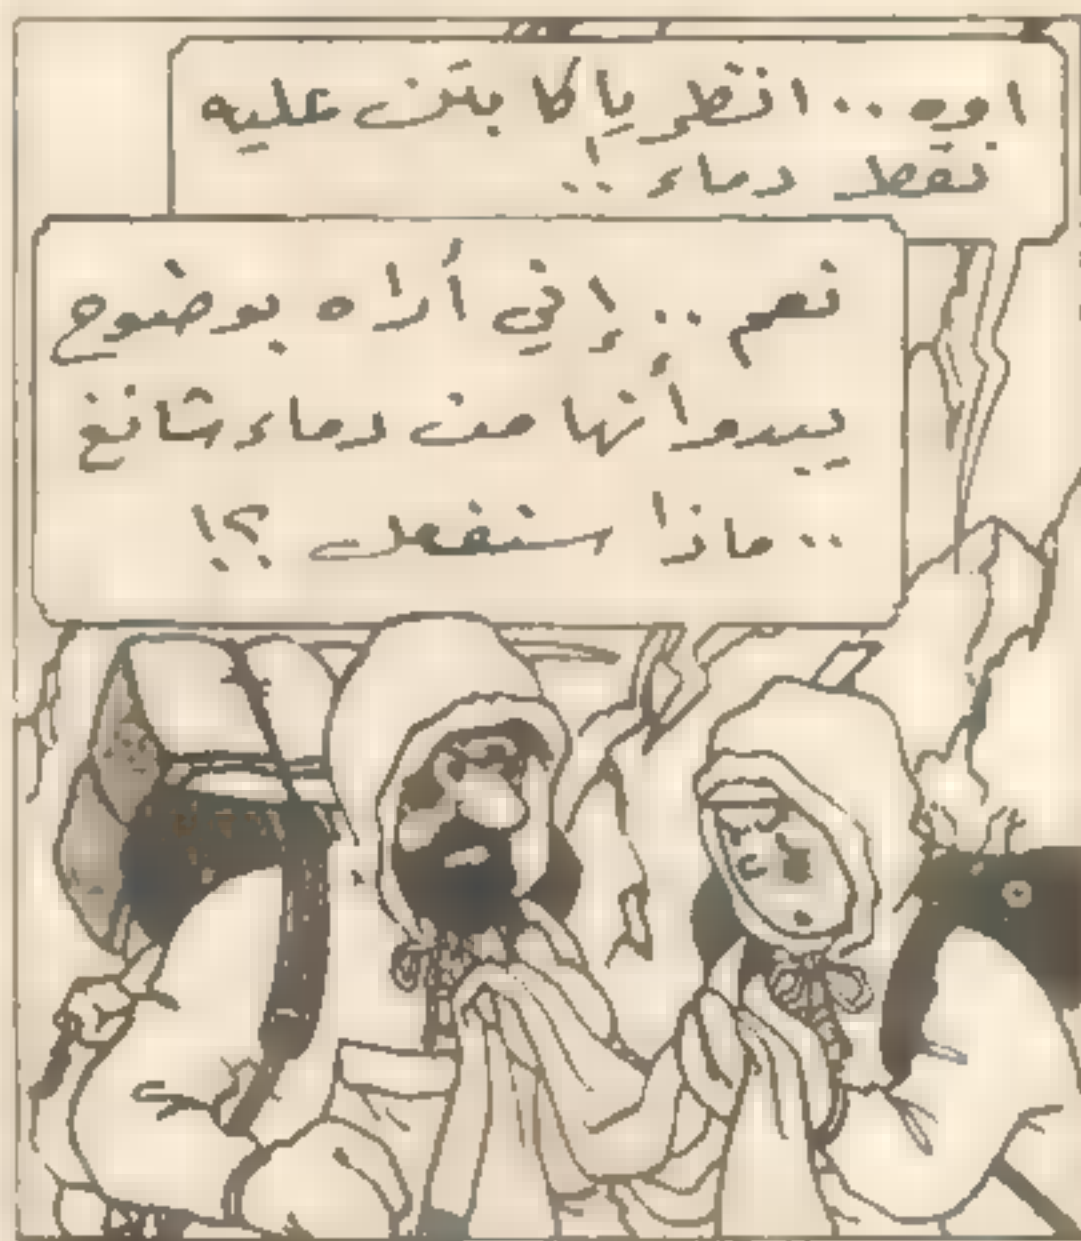 اوه .. انظر يا كابتن عليه
نقط دماء ..!
نعم .. إني أراه بوضوح
يبدوا أنها من دماء شانغ
.. ماذا سنفعل ؟!